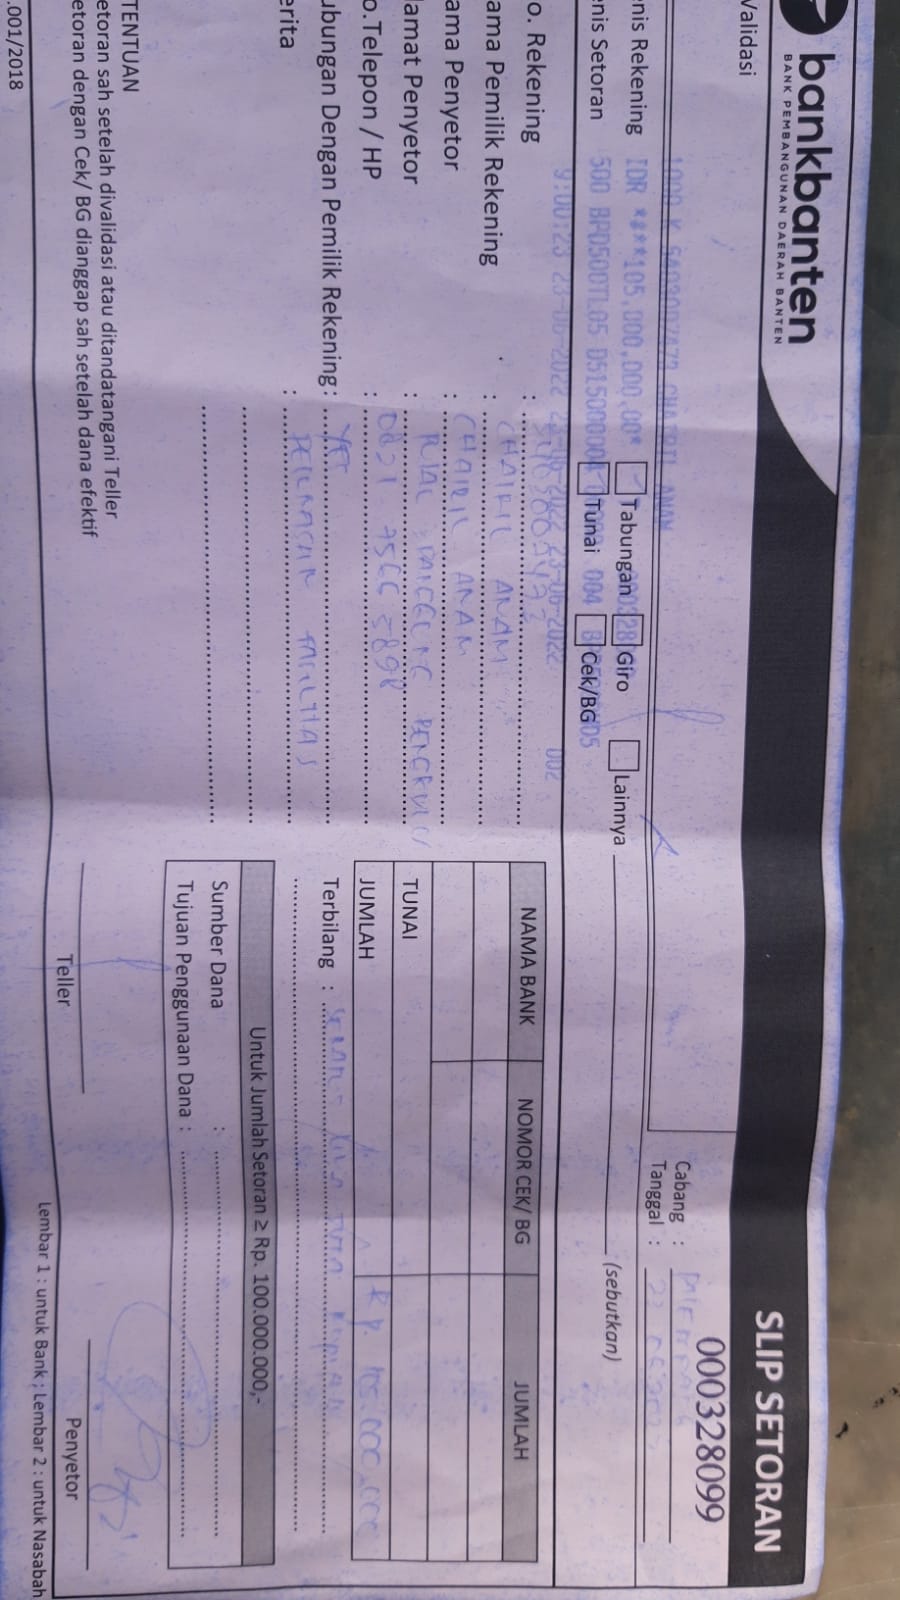 bankbanten
BANK PEMBANGUNAN DAERAH BANTEN
SLIP SETORAN
000328099
Validasi
CHAIRIL ANAM
Cabang :
Tanggal :
enis Rekening IDR ****105,000,000.00* Tabungan Giro Lainnya (sebutkan)
enis Setoran 500 BPD500TL05 Tunai 004 Cek/BG
9:00:23 23-06-2022 23-06-2022 002
o. Rekening :
ama Pemilik Rekening : CHAIRIL ANAM
ama Penyetor : CHAIRIL ANAM
lamat Penyetor :
o.Telepon / HP : 0821 7566 5898
ubungan Dengan Pemilik Rekening :
erita : PELUNASAN FASILITAS
NAMA BANK NOMOR CEK/ BG JUMLAH
TUNAI
JUMLAH Rp. 105.000.000
Terbilang :
Untuk Jumlah Setoran ≥ Rp. 100.000.000,-
Sumber Dana :
Tujuan Penggunaan Dana :
TENTUAN
etoran sah setelah divalidasi atau ditandatangani Teller
etoran dengan Cek/ BG dianggap sah setelah dana efektif
Teller
Penyetor
.001/2018
Lembar 1 : untuk Bank ; Lembar 2 : untuk Nasabah